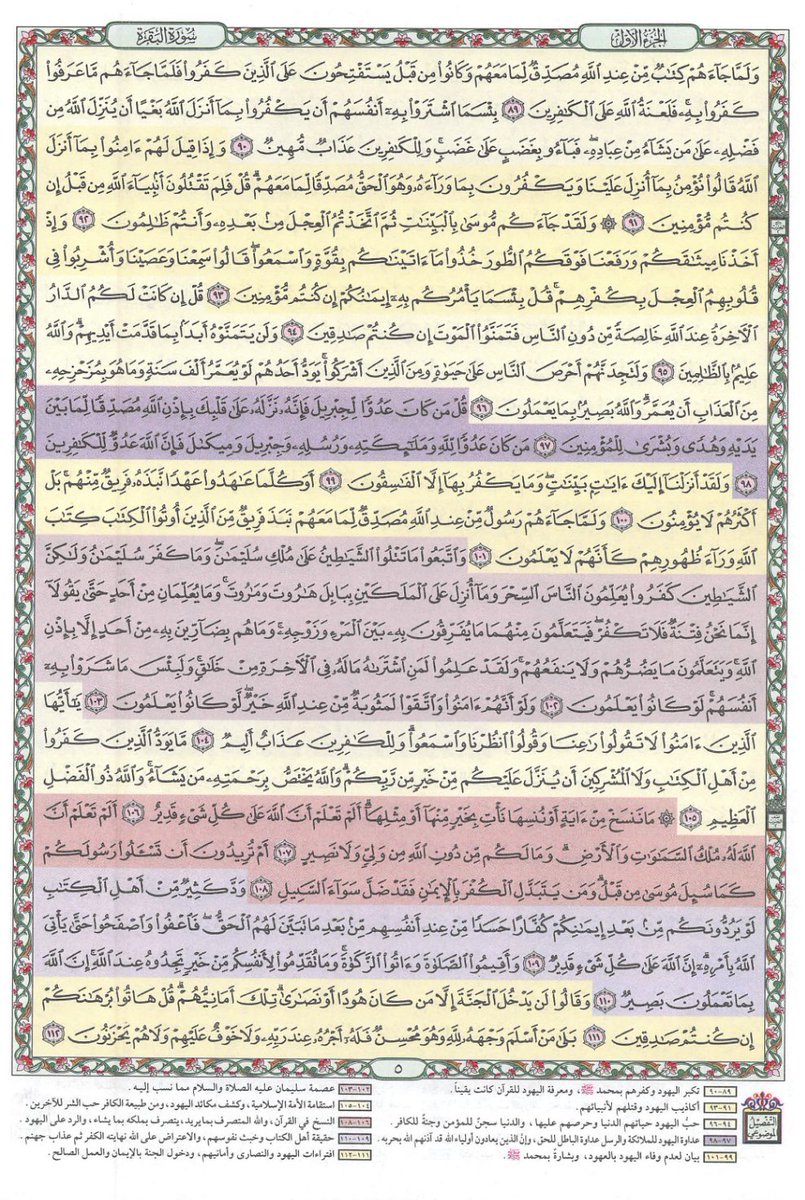 الجزء الأول
سورة البقرة
وَلَمَّا جَاءَهُمْ كِتَابٌ مِنْ عِنْدِ اللَّهِ مُصَدِّقٌ لِمَا مَعَهُمْ وَكَانُوا مِنْ قَبْلُ يَسْتَفْتِحُونَ عَلَى الَّذِينَ كَفَرُوا فَلَمَّا جَاءَهُمْ مَا عَرَفُوا
كَفَرُوا بِهِ فَلَعْنَةُ اللَّهِ عَلَى الْكَافِرِينَ ٨٩ بِئْسَمَا اشْتَرَوْا بِهِ أَنْفُسَهُمْ أَنْ يَكْفُرُوا بِمَا أَنْزَلَ اللَّهُ بَغْيًا أَنْ يُنَزِّلَ اللَّهُ مِنْ
فَضْلِهِ عَلَى مَنْ يَشَاءُ مِنْ عِبَادِهِ فَبَاءُو بِغَضَبٍ عَلَى غَضَبٍ وَلِلْكَافِرِينَ عَذَابٌ مُهِينٌ ٩٠ وَإِذَا قِيلَ لَهُمْ ءَامِنُوا بِمَا أَنْزَلَ
اللَّهُ قَالُوا نُؤْمِنُ بِمَا أُنْزِلَ عَلَيْنَا وَيَكْفُرُونَ بِمَا وَرَاءَهُ وَهُوَ الْحَقُّ مُصَدِّقًا لِمَا مَعَهُمْ قُلْ فَلِمَ تَقْتُلُونَ أَنْبِيَاءَ اللَّهِ مِنْ قَبْلُ إِنْ
كُنْتُمْ مُؤْمِنِينَ ٩١ ۞ وَلَقَدْ جَاءَكُمْ مُوسَى بِالْبَيِّنَاتِ ثُمَّ اتَّخَذْتُمُ الْعِجْلَ مِنْ بَعْدِهِ وَأَنْتُمْ ظَالِمُونَ ٩٢ وَإِذْ
أَخَذْنَا مِيثَاقَكُمْ وَرَفَعْنَا فَوْقَكُمُ الطُّورَ خُذُوا مَا ءَاتَيْنَاكُمْ بِقُوَّةٍ وَاسْمَعُوا قَالُوا سَمِعْنَا وَعَصَيْنَا وَأُشْرِبُوا فِي
قُلُوبِهِمُ الْعِجْلَ بِكُفْرِهِمْ قُلْ بِئْسَمَا يَأْمُرُكُمْ بِهِ إِيمَانُكُمْ إِنْ كُنْتُمْ مُؤْمِنِينَ ٩٣ قُلْ إِنْ كَانَتْ لَكُمُ الدَّارُ
الْآخِرَةُ عِنْدَ اللَّهِ خَالِصَةً مِنْ دُونِ النَّاسِ فَتَمَنَّوُا الْمَوْتَ إِنْ كُنْتُمْ صَادِقِينَ ٩٤ وَلَنْ يَتَمَنَّوْهُ أَبَدًا بِمَا قَدَّمَتْ أَيْدِيهِمْ وَاللَّهُ
عَلِيمٌ بِالظَّالِمِينَ ٩٥ وَلَتَجِدَنَّهُمْ أَحْرَصَ النَّاسِ عَلَى حَيَوٰةٍ وَمِنَ الَّذِينَ أَشْرَكُوا يَوَدُّ أَحَدُهُمْ لَوْ يُعَمَّرُ أَلْفَ سَنَةٍ وَمَا هُوَ بِمُزَحْزِحِهِ
مِنَ الْعَذَابِ أَنْ يُعَمَّرَ وَاللَّهُ بَصِيرٌ بِمَا يَعْمَلُونَ ٩٦ قُلْ مَنْ كَانَ عَدُوًّا لِجِبْرِيلَ فَإِنَّهُ نَزَّلَهُ عَلَى قَلْبِكَ بِإِذْنِ اللَّهِ مُصَدِّقًا لِمَا بَيْنَ
يَدَيْهِ وَهُدًى وَبُشْرَى لِلْمُؤْمِنِينَ ٩٧ مَنْ كَانَ عَدُوًّا لِلَّهِ وَمَلَائِكَتِهِ وَرُسُلِهِ وَجِبْرِيلَ وَمِيكَالَ فَإِنَّ اللَّهَ عَدُوٌّ لِلْكَافِرِينَ
٩٨ وَلَقَدْ أَنْزَلْنَا إِلَيْكَ ءَايَاتٍ بَيِّنَاتٍ وَمَا يَكْفُرُ بِهَا إِلَّا الْفَاسِقُونَ ٩٩ أَوَكُلَّمَا عَاهَدُوا عَهْدًا نَبَذَهُ فَرِيقٌ مِنْهُمْ بَلْ
أَكْثَرُهُمْ لَا يُؤْمِنُونَ ١٠٠ وَلَمَّا جَاءَهُمْ رَسُولٌ مِنْ عِنْدِ اللَّهِ مُصَدِّقٌ لِمَا مَعَهُمْ نَبَذَ فَرِيقٌ مِنَ الَّذِينَ أُوتُوا الْكِتَابَ كِتَابَ
اللَّهِ وَرَاءَ ظُهُورِهِمْ كَأَنَّهُمْ لَا يَعْلَمُونَ ١٠١ وَاتَّبَعُوا مَا تَتْلُوا الشَّيَاطِينُ عَلَى مُلْكِ سُلَيْمَانَ وَمَا كَفَرَ سُلَيْمَانُ وَلَكِنَّ
الشَّيَاطِينَ كَفَرُوا يُعَلِّمُونَ النَّاسَ السِّحْرَ وَمَا أُنْزِلَ عَلَى الْمَلَكَيْنِ بِبَابِلَ هَارُوتَ وَمَارُوتَ وَمَا يُعَلِّمَانِ مِنْ أَحَدٍ حَتَّى يَقُولَا
إِنَّمَا نَحْنُ فِتْنَةٌ فَلَا تَكْفُرْ فَيَتَعَلَّمُونَ مِنْهُمَا مَا يُفَرِّقُونَ بِهِ بَيْنَ الْمَرْءِ وَزَوْجِهِ وَمَا هُمْ بِضَارِّينَ بِهِ مِنْ أَحَدٍ إِلَّا بِإِذْنِ
اللَّهِ وَيَتَعَلَّمُونَ مَا يَضُرُّهُمْ وَلَا يَنْفَعُهُمْ وَلَقَدْ عَلِمُوا لَمَنِ اشْتَرَاهُ مَا لَهُ فِي الْآخِرَةِ مِنْ خَلَاقٍ وَلَبِئْسَ مَا شَرَوْا بِهِ
أَنْفُسَهُمْ لَوْ كَانُوا يَعْلَمُونَ ١٠٢ وَلَوْ أَنَّهُمْ ءَامَنُوا وَاتَّقَوْا لَمَثُوبَةٌ مِنْ عِنْدِ اللَّهِ خَيْرٌ لَوْ كَانُوا يَعْلَمُونَ ١٠٣ يَا أَيُّهَا
الَّذِينَ ءَامَنُوا لَا تَقُولُوا رَاعِنَا وَقُولُوا انْظُرْنَا وَاسْمَعُوا وَلِلْكَافِرِينَ عَذَابٌ أَلِيمٌ ١٠٤ مَا يَوَدُّ الَّذِينَ كَفَرُوا
مِنْ أَهْلِ الْكِتَابِ وَلَا الْمُشْرِكِينَ أَنْ يُنَزَّلَ عَلَيْكُمْ مِنْ خَيْرٍ مِنْ رَبِّكُمْ وَاللَّهُ يَخْتَصُّ بِرَحْمَتِهِ مَنْ يَشَاءُ وَاللَّهُ ذُو الْفَضْلِ
الْعَظِيمِ ١٠٥ ۞ مَا نَنْسَخْ مِنْ ءَايَةٍ أَوْ نُنْسِهَا نَأْتِ بِخَيْرٍ مِنْهَا أَوْ مِثْلِهَا أَلَمْ تَعْلَمْ أَنَّ اللَّهَ عَلَى كُلِّ شَيْءٍ قَدِيرٌ ١٠٦ أَلَمْ تَعْلَمْ أَنَّ
اللَّهَ لَهُ مُلْكُ السَّمَوَاتِ وَالْأَرْضِ وَمَا لَكُمْ مِنْ دُونِ اللَّهِ مِنْ وَلِيٍّ وَلَا نَصِيرٍ ١٠٧ أَمْ تُرِيدُونَ أَنْ تَسْئَلُوا رَسُولَكُمْ
كَمَا سُئِلَ مُوسَى مِنْ قَبْلُ وَمَنْ يَتَبَدَّلِ الْكُفْرَ بِالْإِيمَانِ فَقَدْ ضَلَّ سَوَاءَ السَّبِيلِ ١٠٨ وَدَّ كَثِيرٌ مِنْ أَهْلِ الْكِتَابِ
لَوْ يَرُدُّونَكُمْ مِنْ بَعْدِ إِيمَانِكُمْ كُفَّارًا حَسَدًا مِنْ عِنْدِ أَنْفُسِهِمْ مِنْ بَعْدِ مَا تَبَيَّنَ لَهُمُ الْحَقُّ فَاعْفُوا وَاصْفَحُوا حَتَّى يَأْتِيَ
اللَّهُ بِأَمْرِهِ إِنَّ اللَّهَ عَلَى كُلِّ شَيْءٍ قَدِيرٌ ١٠٩ وَأَقِيمُوا الصَّلَوٰةَ وَءَاتُوا الزَّكَوٰةَ وَمَا تُقَدِّمُوا لِأَنْفُسِكُمْ مِنْ خَيْرٍ تَجِدُوهُ عِنْدَ اللَّهِ إِنَّ اللَّهَ
بِمَا تَعْمَلُونَ بَصِيرٌ ١١٠ وَقَالُوا لَنْ يَدْخُلَ الْجَنَّةَ إِلَّا مَنْ كَانَ هُودًا أَوْ نَصَارَى تِلْكَ أَمَانِيُّهُمْ قُلْ هَاتُوا بُرْهَانَكُمْ
إِنْ كُنْتُمْ صَادِقِينَ ١١١ بَلَى مَنْ أَسْلَمَ وَجْهَهُ لِلَّهِ وَهُوَ مُحْسِنٌ فَلَهُ أَجْرُهُ عِنْدَ رَبِّهِ وَلَا خَوْفٌ عَلَيْهِمْ وَلَا هُمْ يَحْزَنُونَ ١١٢
٥
التفصيل الموضوعي
٨٩-٩٠ تكبر اليهود وكفرهم بمحمد ﷺ، ومعرفة اليهود للقرآن كانت يقيناً.
٩١-٩٣ أكاذيب اليهود وقتلهم لأنبيائهم.
٩٤-٩٦ حبُّ اليهود حياتهم الدنيا وحرصهم عليها، والدنيا سجنٌ للمؤمن وجنةٌ للكافر.
٩٧-٩٨ عداوة اليهود للملائكة والرسل عداوة الباطل للحق، وإنَّ الذين يعادون أولياء الله قد آذنهم الله بحربه.
٩٩-١٠١ بيان لعدم وفاء اليهود بالعهود، وبشارةٌ بمحمد ﷺ.
١٠٢-١٠٣ عصمة سليمان عليه الصلاة والسلام مما نسب إليه.
١٠٤-١٠٥ استقامة الأمة الإسلامية، وكشف مكائد اليهود، ومن طبيعة الكافر حب الشر للآخرين.
١٠٦-١٠٨ النسخ في القرآن، والله المتصرف بمايريد، يتصرف بملكه بما يشاء، والرد على اليهود.
١٠٩-١١٠ حقيقة أهل الكتاب وخبث نفوسهم، والاعتراض على الله نهايته الكفر ثم عذاب جهنم.
١١١-١١٢ افتراءات اليهود والنصارى وأمانيهم، ودخول الجنة بالإيمان والعمل الصالح.